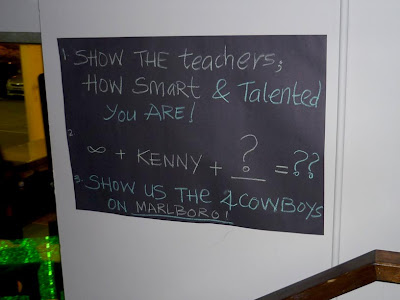 1. SHOW THE teachers;
HOW Smart & Talented
You ARE!
2
∞ + KENNY + ? = ??
3. SHOW US THE 4 COWBOYS
ON MARLBORO!